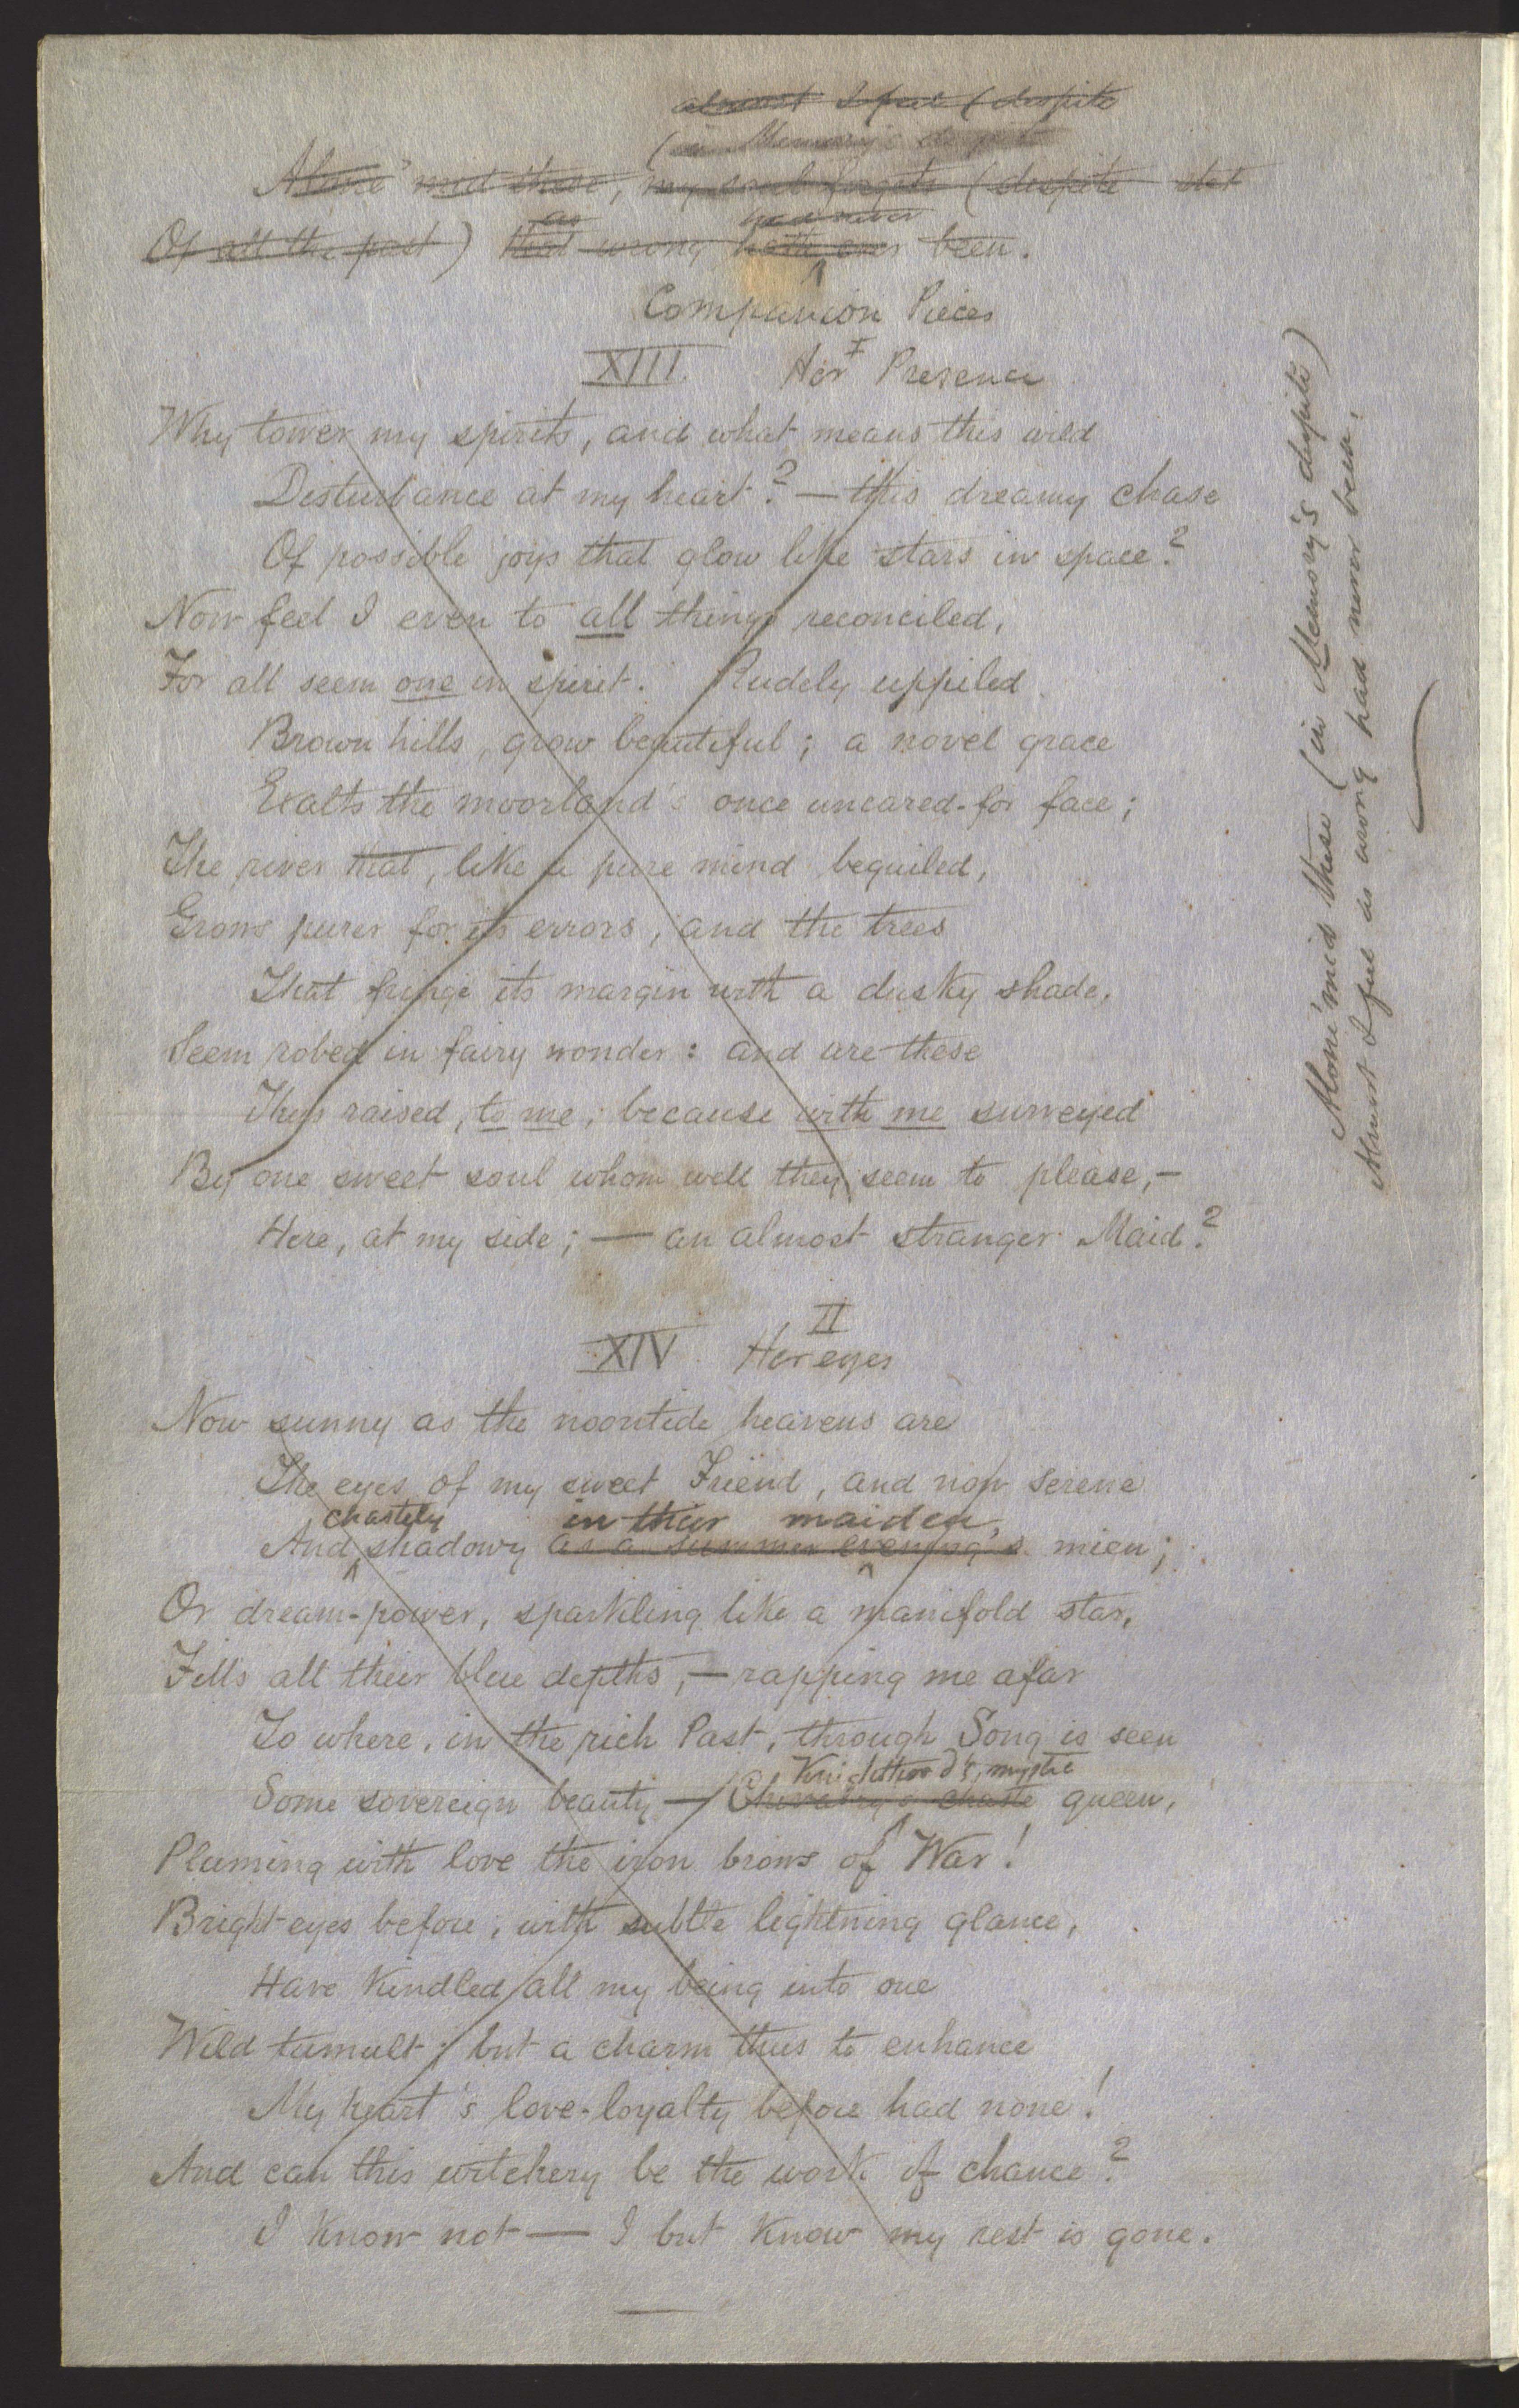 almost I feel (despite
(in Memory's despite
Alone 'mid these, my soul forgets (despite
Of all the past) that wrong hath ever been.
as had never
Companion Pieces
I
XIII. Her Presence
Why tower my spirits, and what means this wild
Disturbance at my heart? — this dreamy chase
Of possible joys that glow like stars in space?
Now feel I even to all things reconciled,
For all seem one in spirit. Rudely uppiled
Brown hills, grow beautiful; a novel grace
Exalts the moorland's once uncared-for face;
The river that, like a pure mind beguiled,
Grows purer for its errors, and the trees
That fringe its margin with a dusky shade,
Seem robed in fairy wonder: and are these
Thus raised, to me, because with me surveyed
By one sweet soul whom well they seem to please,—
Here, at my side; — an almost stranger Maid?
II
XIV. Her eyes
Now sunny as the noontide heavens are
The eyes of my sweet Friend, and now serene
chastely in their maiden
And shadowy as a summer evening's mien;
Or dream-power, sparkling like a manifold star,
Fills all their blue depths, — rapping me afar
To where, in the rich Past, through Song is seen
Knighthood's, mystic
Some sovereign beauty — Chivalry's chaste queen,
Pluming with love the iron brows of War!
Bright eyes before, with subtle lightning glance,
Have Kindled all my being into one
Wild tumult; but a charm thus to enhance
My heart's love-loyalty before had none!
And can this witchery be the work of chance?
I Know not — I but Know my rest is gone.
Alone 'mid these (in Memory's despite)
Almost I feel as wrong had never been!